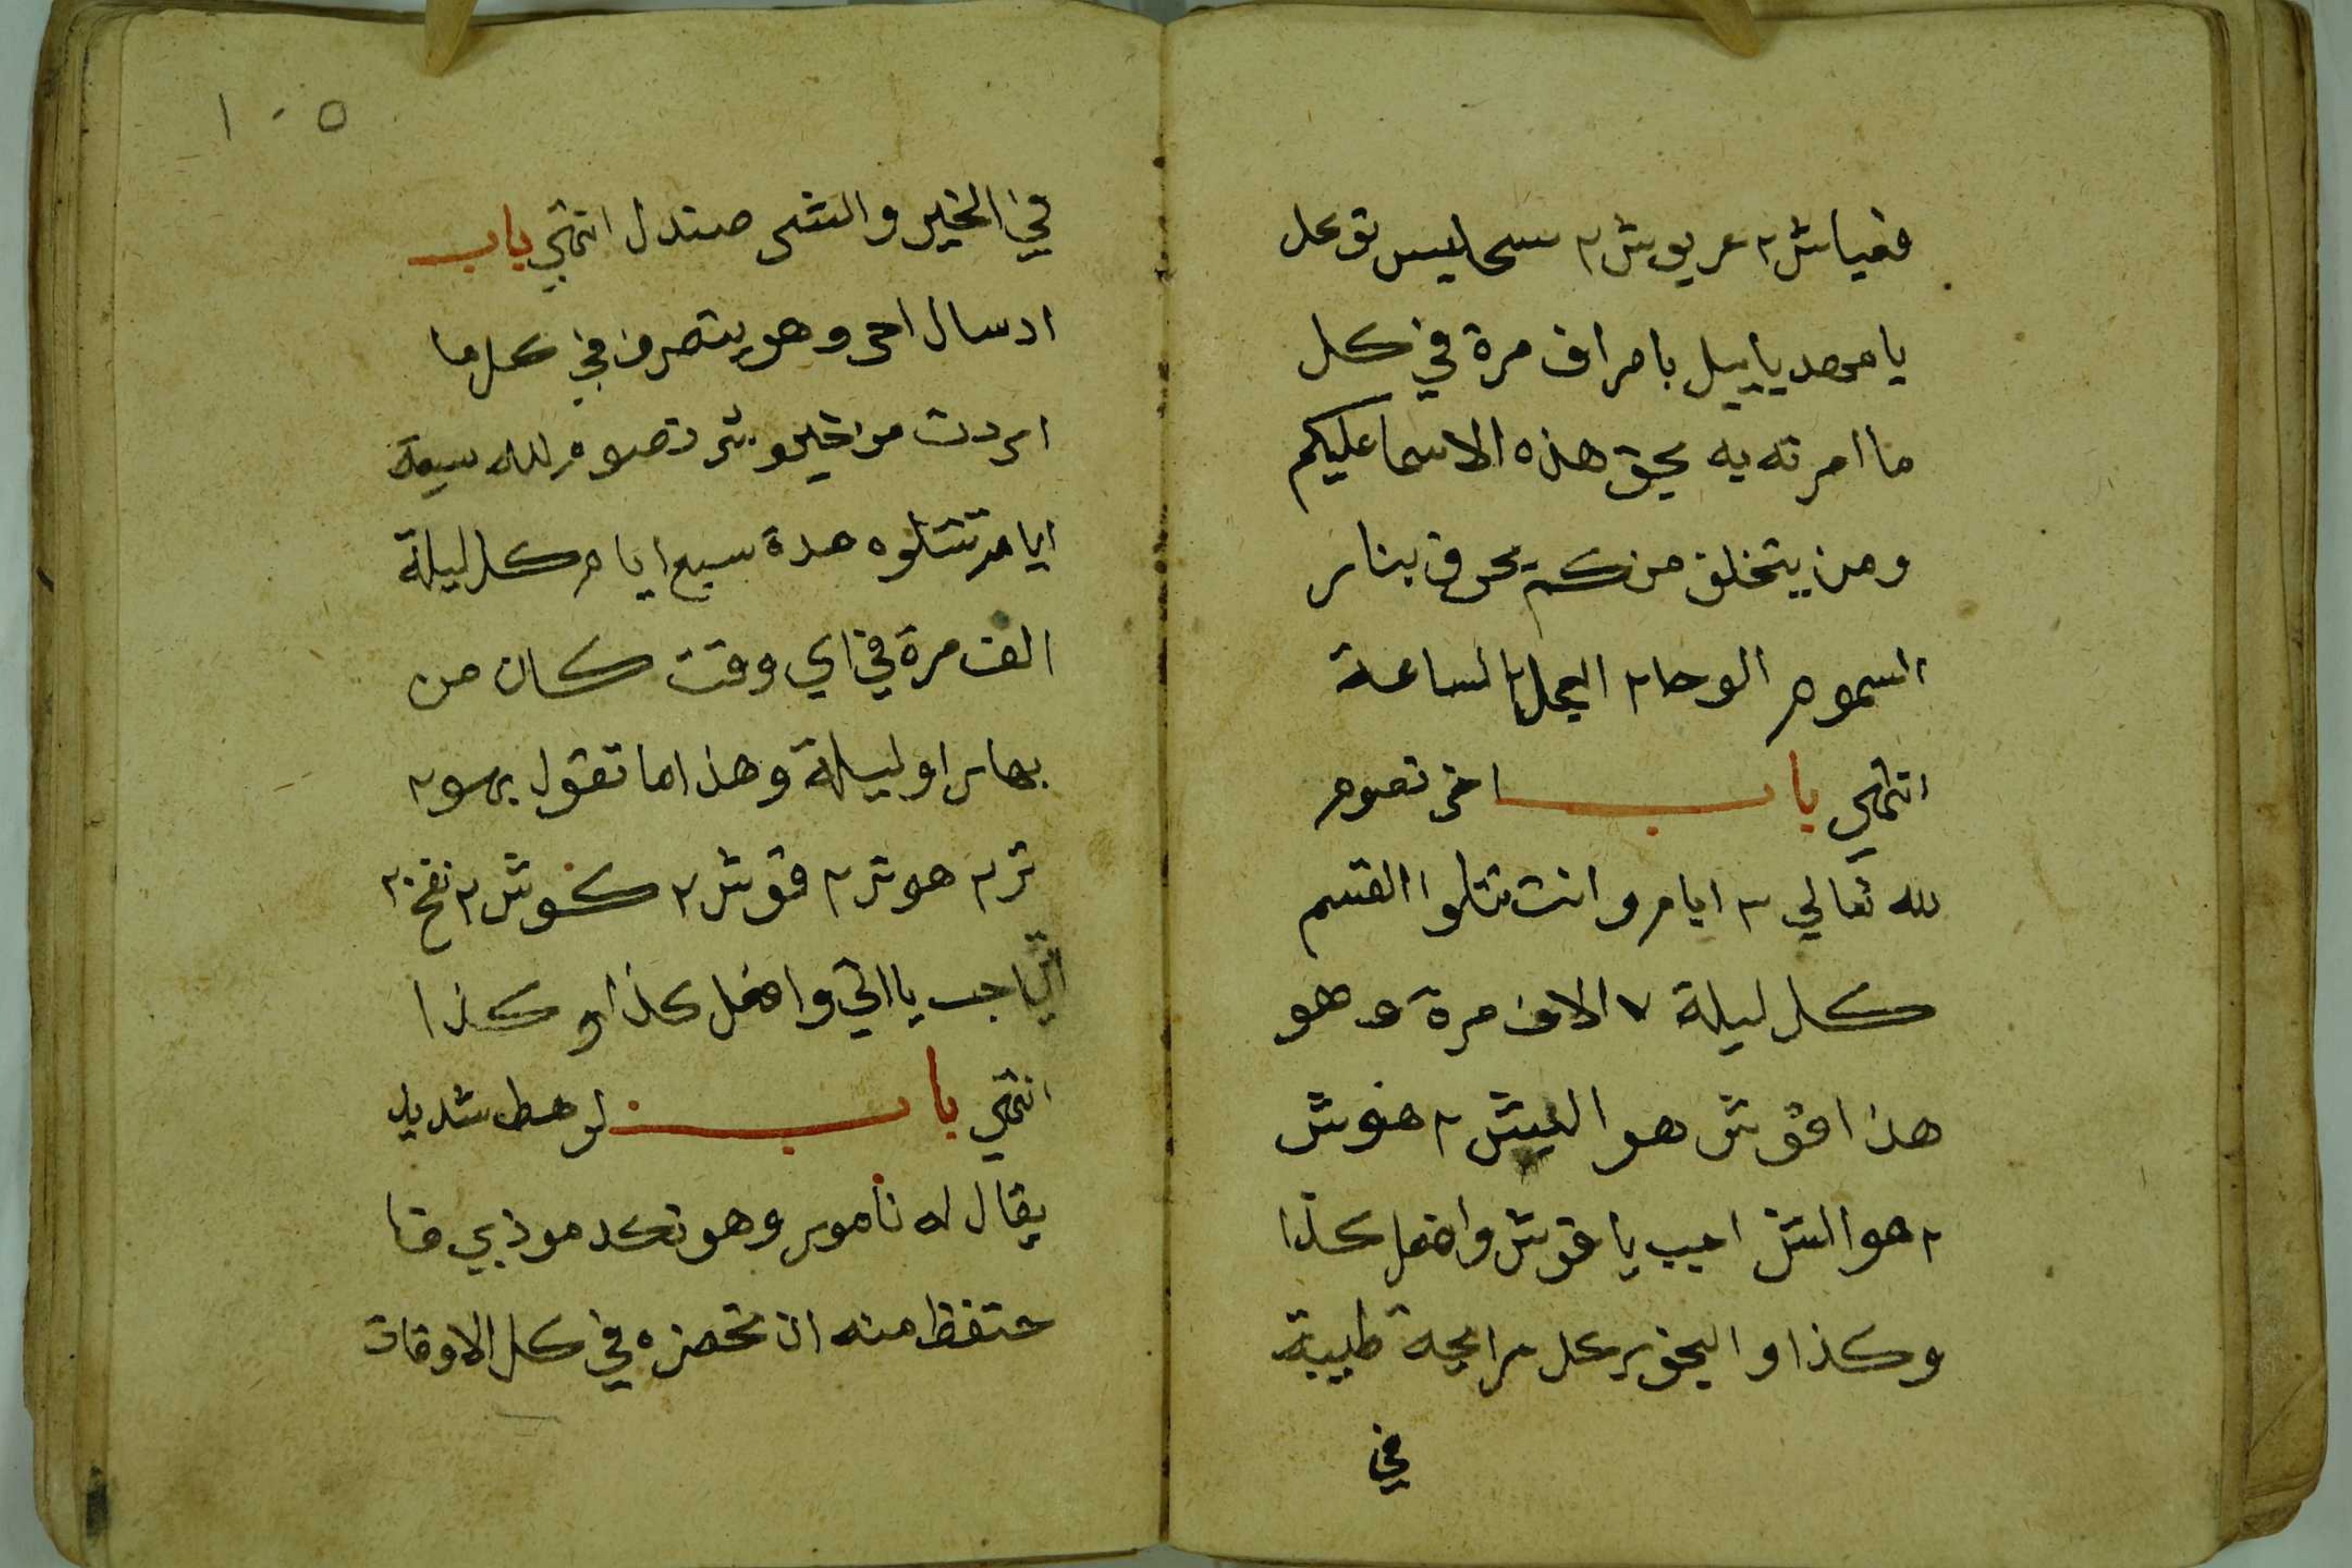 فقياش٢ عريوش٢ سحاليس توكل
يا محمد ياييل بامراف مرة في كل
ما امرته به بحق هذه الاسما عليكم
ومن يتخلف منكم يحرق بنار
السموم الوحا٢ العجل٢ الساعة
انتهي باب اخر تصوم
لله تعالي ٣ ايام وانت تتلوا القسم
كل ليلة ٧ الاف مرة وهو
هذا اقوش هو الليش٢ هنوش
٢ هو الش اجيب يا قوش وافعل كذا
وكذا والبخور كل رايحة طيبة
في
١٠٥
في الخير والشر صندل انتهي باب
ارسال احر وهو يتصرف في كل ما
اردت من خير وشر تصوم لله سبعة
ايام تتلوه مدة سبع ايام كل ليلة
الف مرة في اي وقت كان من
نهار او ليلة وهذا ما تقول برسو٢
تر٢ هوتر٢ قوش٢ كوش٢ نفخ٢
اجب يا اني وافعل كذا وكذا
انتهي باب لوهط شديد
يقال له نامور وهو نكد موذي فا
حتفظ منه ان تحضره في كل الاوقات